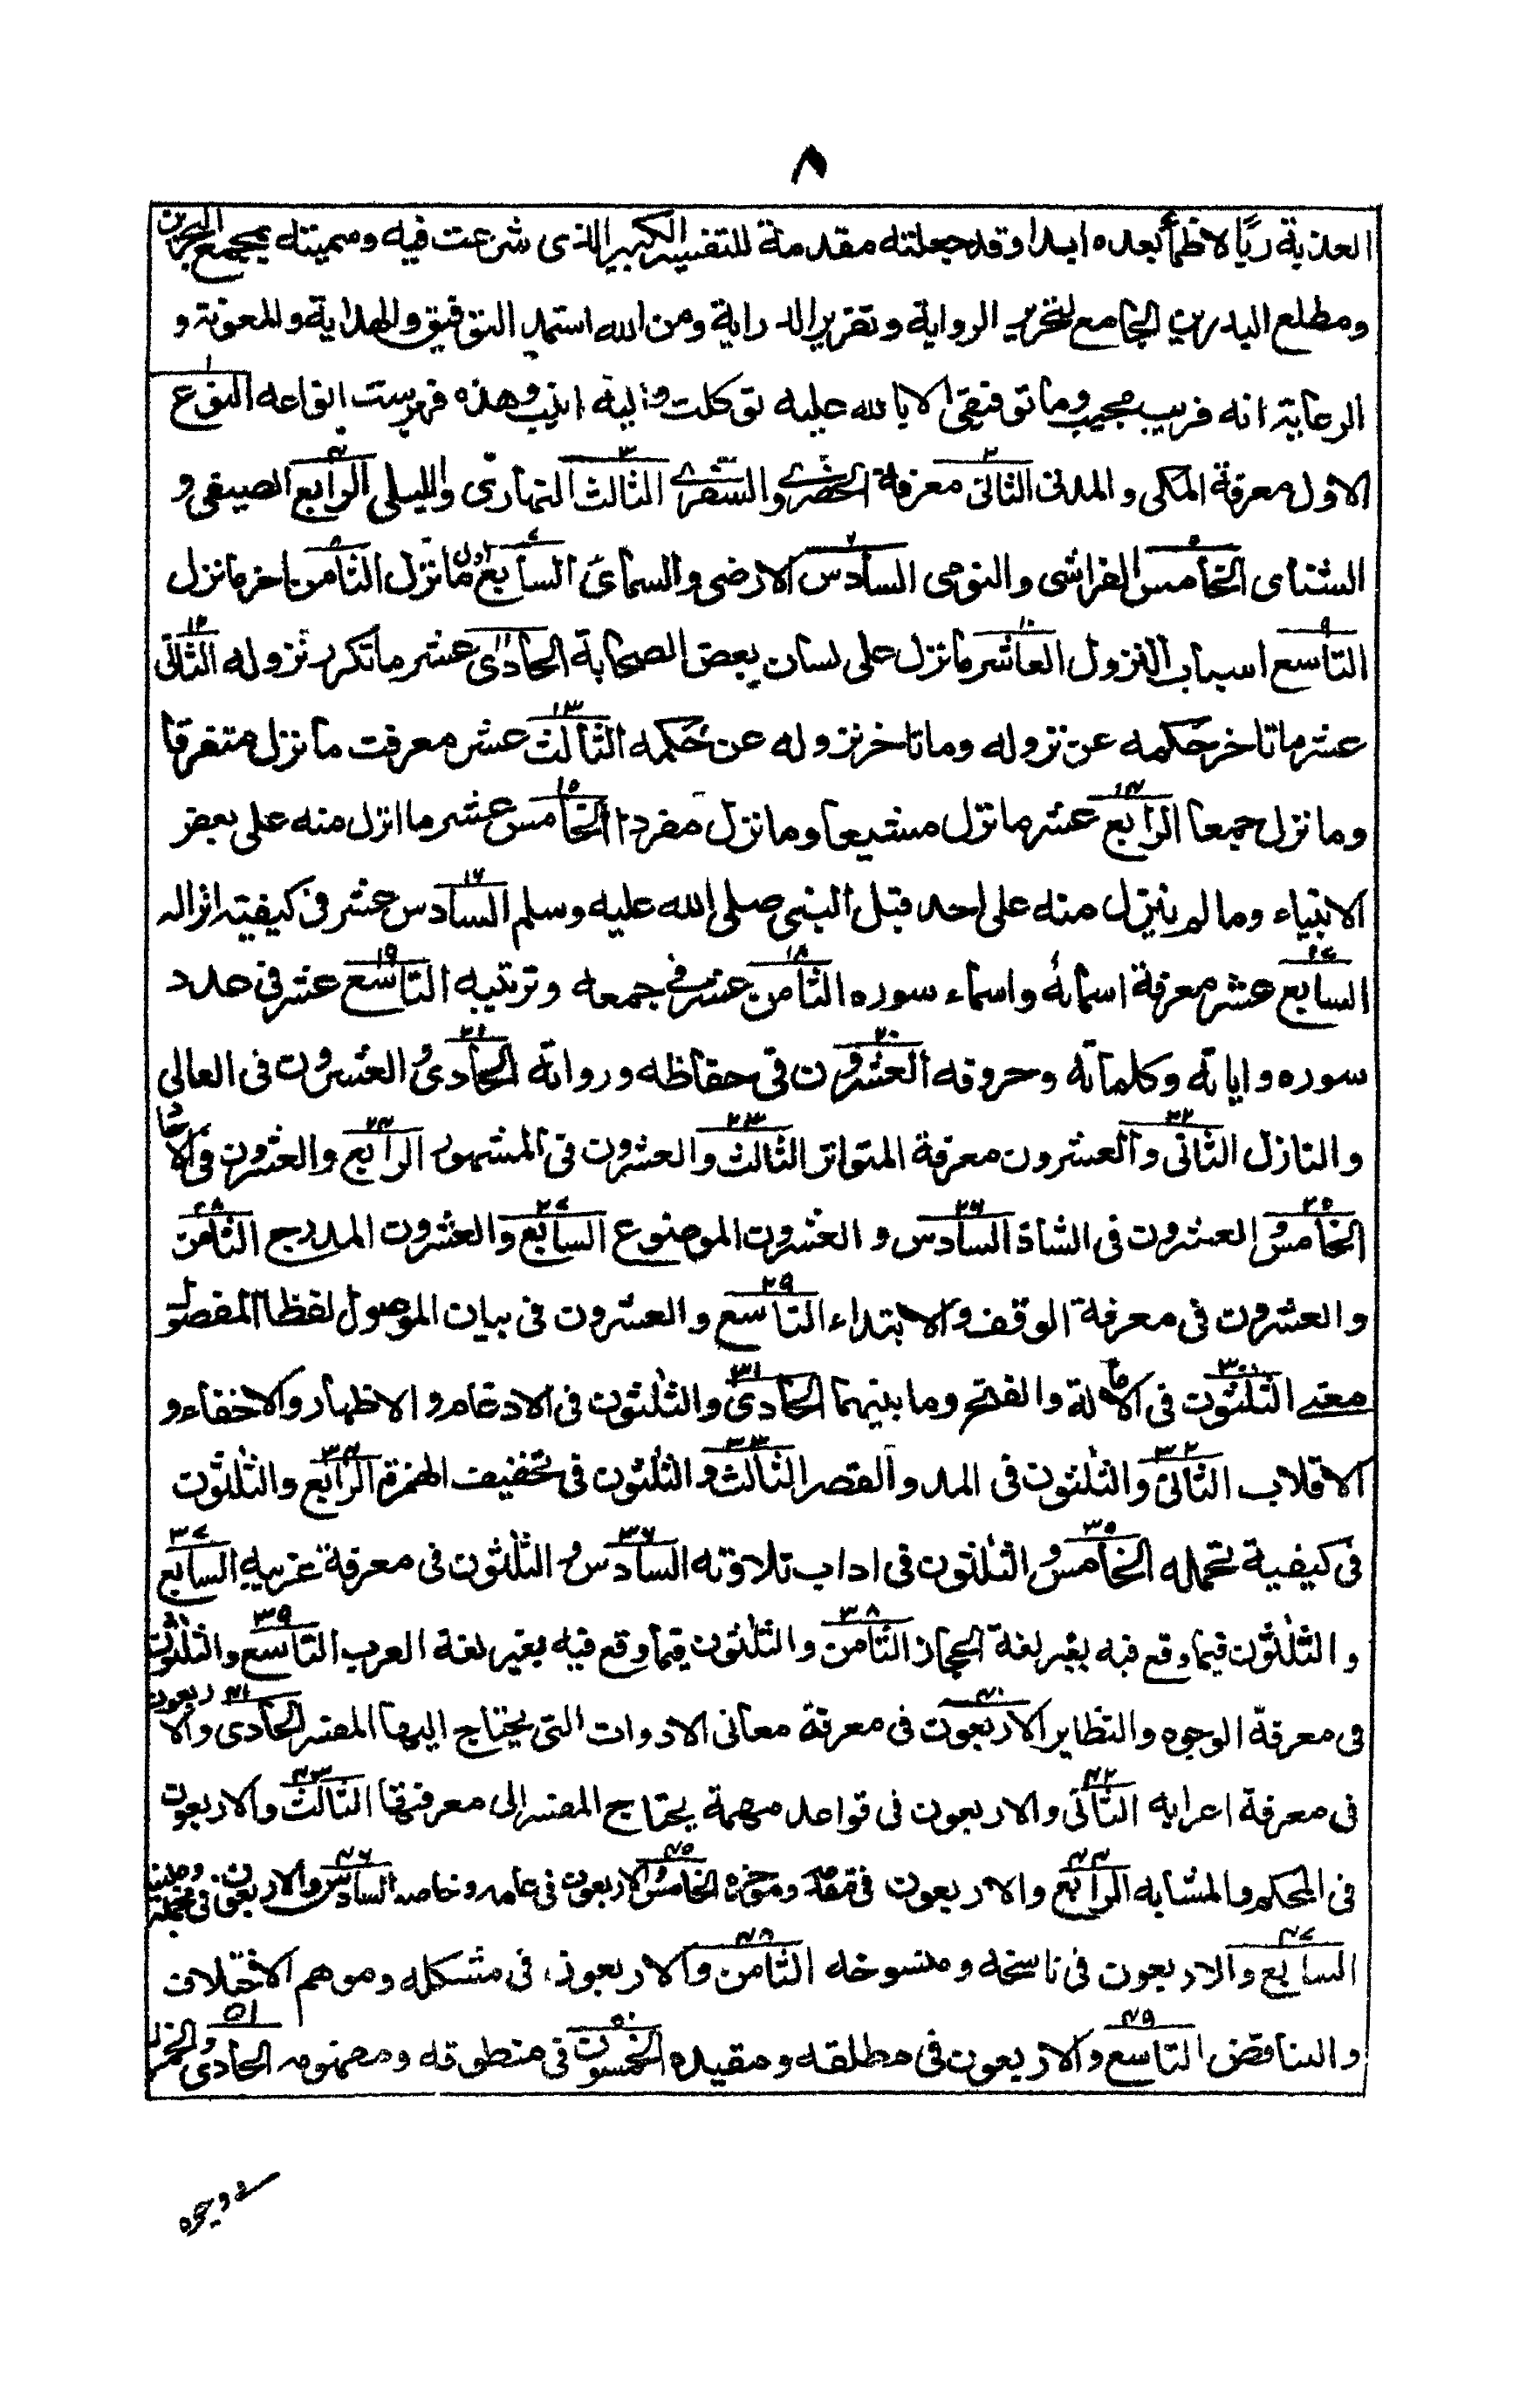 ٨
العذبة ريّا لا ظمأ بعده ابدا وقد جعلته مقدمة للتفسير الكبير الذى شرعت فيه وسميته بمجمع البحرين
ومطلع البدرين الجامع لتحرير الرواية وتقرير الدراية ومن الله استمد التوفيق والهداية والمعونة و
الرعاية انه قريب مجيب وما توفيقى الا بالله عليه توكلت واليه انيب وهذه فهرست انواعه النوع ١
الاول معرفة المكى والمدنى الثانى ٢ معرفة الحضرى والسفرى الثالث ٣ النهارى والليلى الرابع ٤ الصيفى و
الشتاى الخامس ٥ الفراشى والنومى السادس ٦ الارضى والسماى السابع ٧ اول ما نزل الثامن ٨ اخر ما نزل
التاسع ٩ اسباب النزول العاشر ١٠ ما نزل على لسان بعض الصحابة الحادى ١١ عشر ما تكرر نزوله الثانى ١٢
عشر ما تاخر حكمه عن نزوله وما تاخر نزوله عن حكمه الثالث ١٣ عشر معرفت ما نزل متفرقا
وما نزل جمعا الرابع ١٤ عشر ما نزل مشيعا وما نزل مفردا الخامس ١٥ عشر ما انزل منه على بعض
الانبياء وما لم ينزل منه على احد قبل النبى صلى الله عليه وسلم السادس ١٦ عشر فى كيفية انزاله
السابع ١٧ عشر معرفة اسمائه واسماء سوره الثامن ١٨ عشر فى جمعه وترتيبه التاسع ١٩ عشر فى عدد
سوره واياته وكلماته وحروفه العشرون ٢٠ فى حفاظه ورواته الحادى ٢١ والعشرون فى العالى
والنازل الثانى ٢٢ والعشرون معرفة المتواتر الثالث ٢٣ والعشرون فى المشهور الرابع ٢٤ والعشرون فى الاحاد
الخامس ٢٥ والعشرون فى الشاذ السادس ٢٦ والعشرون الموضوع السابع ٢٧ والعشرون المدرج الثامن ٢٨
والعشرون فى معرفة الوقف والابتداء التاسع ٢٩ والعشرون فى بيان الموصول لفظا المفصول
معنى الثلثون ٣٠ فى الامالة والفتح وما بينهما الحادى ٣١ والثلثون فى الادغام والاظهار والاخفاء و
الاقلاب الثانى ٣٢ والثلثون فى المد والقصر الثالث ٣٣ والثلثون فى تخفيف الهمزة الرابع ٣٤ والثلثون
فى كيفية تحمله الخامس ٣٥ والثلثون فى اداب تلاوته السادس ٣٦ والثلثون فى معرفة غريبه السابع ٣٧
والثلثون فيما وقع فيه بغير لغة الحجاز الثامن ٣٨ والثلثون فيما وقع فيه بغير لغة العرب التاسع ٣٩ والثلثون
فى معرفة الوجوه والنظاير الاربعون ٤٠ فى معرفة معانى الادوات التى يحتاج اليها المفسر الحادى ٤١ والاربعون
فى معرفة اعرابه الثانى ٤٢ والاربعون فى قواعد مهمة يحتاج المفسر الى معرفتها الثالث ٤٣ والاربعون
فى المحكم والمتشابه الرابع ٤٤ والاربعون فى مقدمه ومؤخره الخامس ٤٥ والاربعون فى عامه وخاصه السادس ٤٦ والاربعون فى مجمله ومبينه
السابع ٤٧ والاربعون فى ناسخه ومنسوخه الثامن ٤٨ والاربعون فى مشكله وموهم الاختلاف
والتناقض التاسع ٤٩ والاربعون فى مطلقه ومقيده الخمسون ٥٠ فى منطوقه ومفهومه الحادى ٥١ والخمسون
فى وجوه